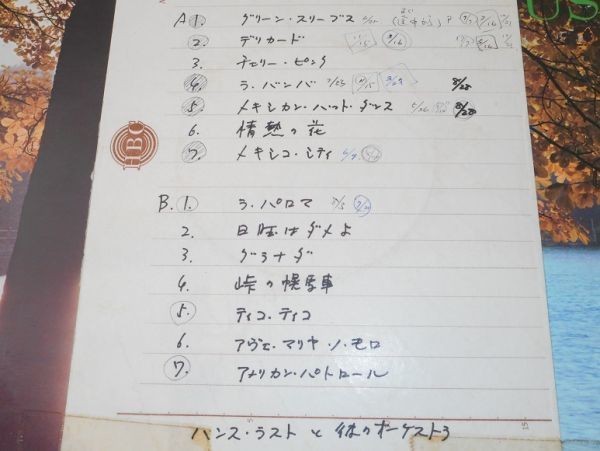 US
A ① グリーン・スリーブス
② デリカード
3. チェリー・ピンク
④ ラ・バンバ 2/23
⑤ メキシカン・ハット・ダンス
6. 情熱の花
⑦ メキシコ・シティ
HBC
B. ① ラ・パロマ
2. 日曜はダメよ
3. グラナダ
4. 峠の幌馬車
⑤ ティコ・ティコ
6. アヴェ・マリヤ・ノ・モロ
⑦ アメリカン・パトロール
ハンス・ラスト と 彼のオーケストラ